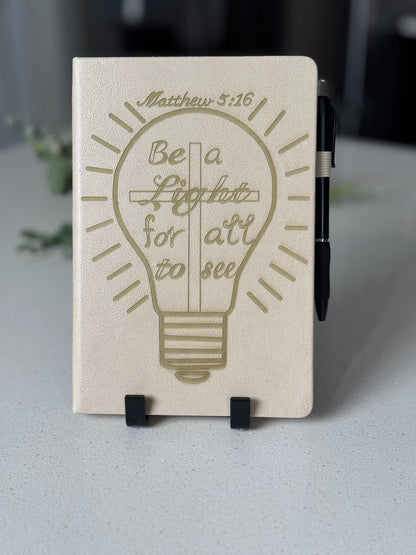 Matthew 5:16
Be a
Light
for all
to see